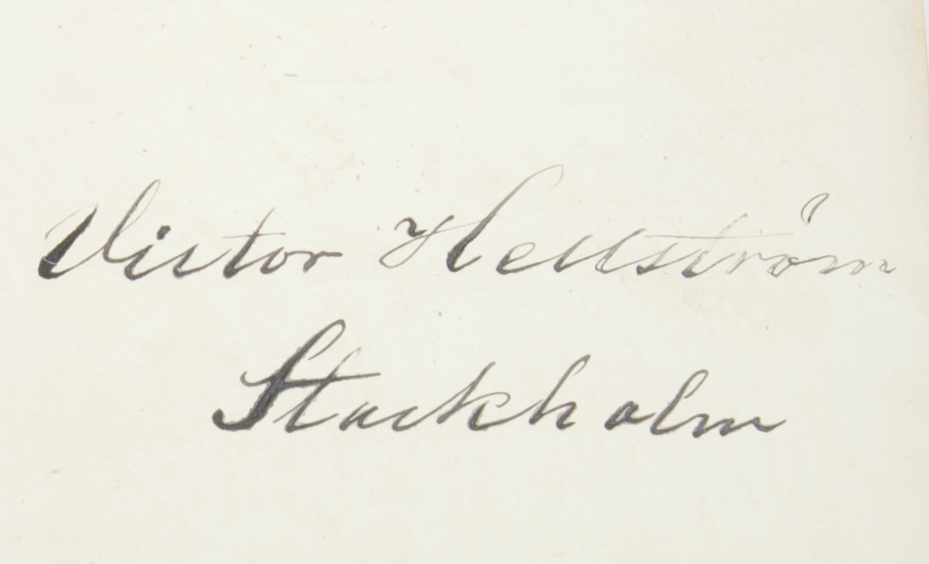 Victor Hellström
Stockholm